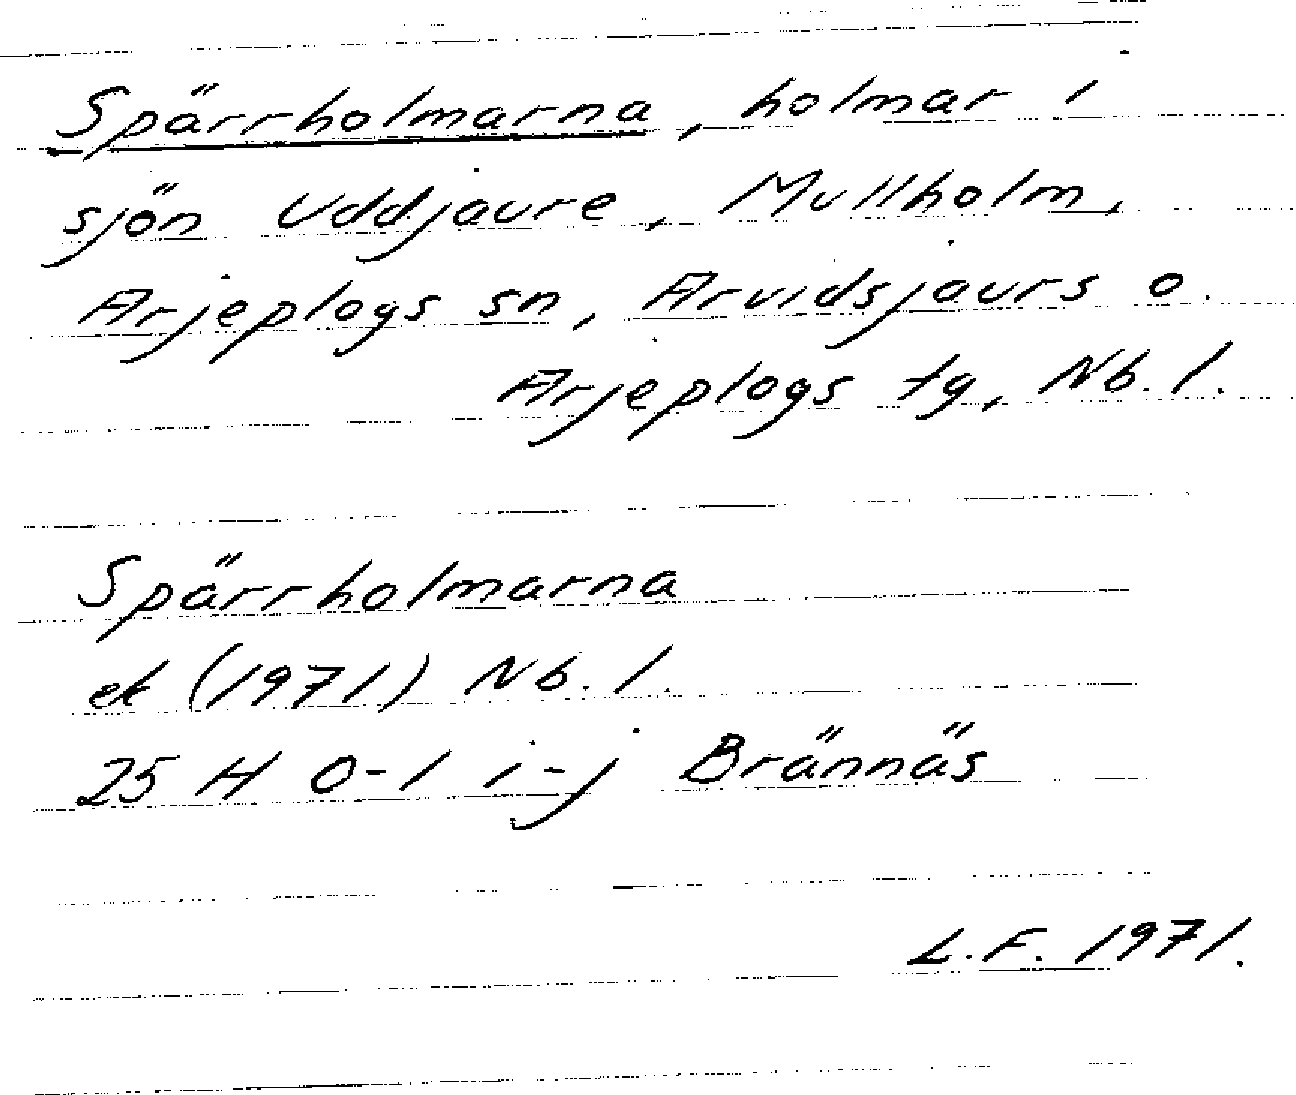 Spärrholmarna, holmar i
sjön Uddjaure, Mullholm,
Arjeplogs sn, Arvidsjaurs o.
Arjeplogs tg, Nb. l.
Spärrholmarna
ek (1971) Nb. l.
25 H 0-1 i-j Brännäs
L.F. 1971.